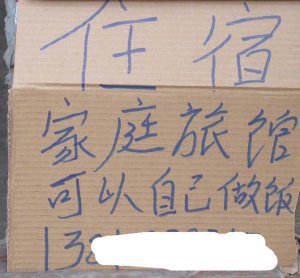 住宿
家庭旅馆
可以自己做饭
138